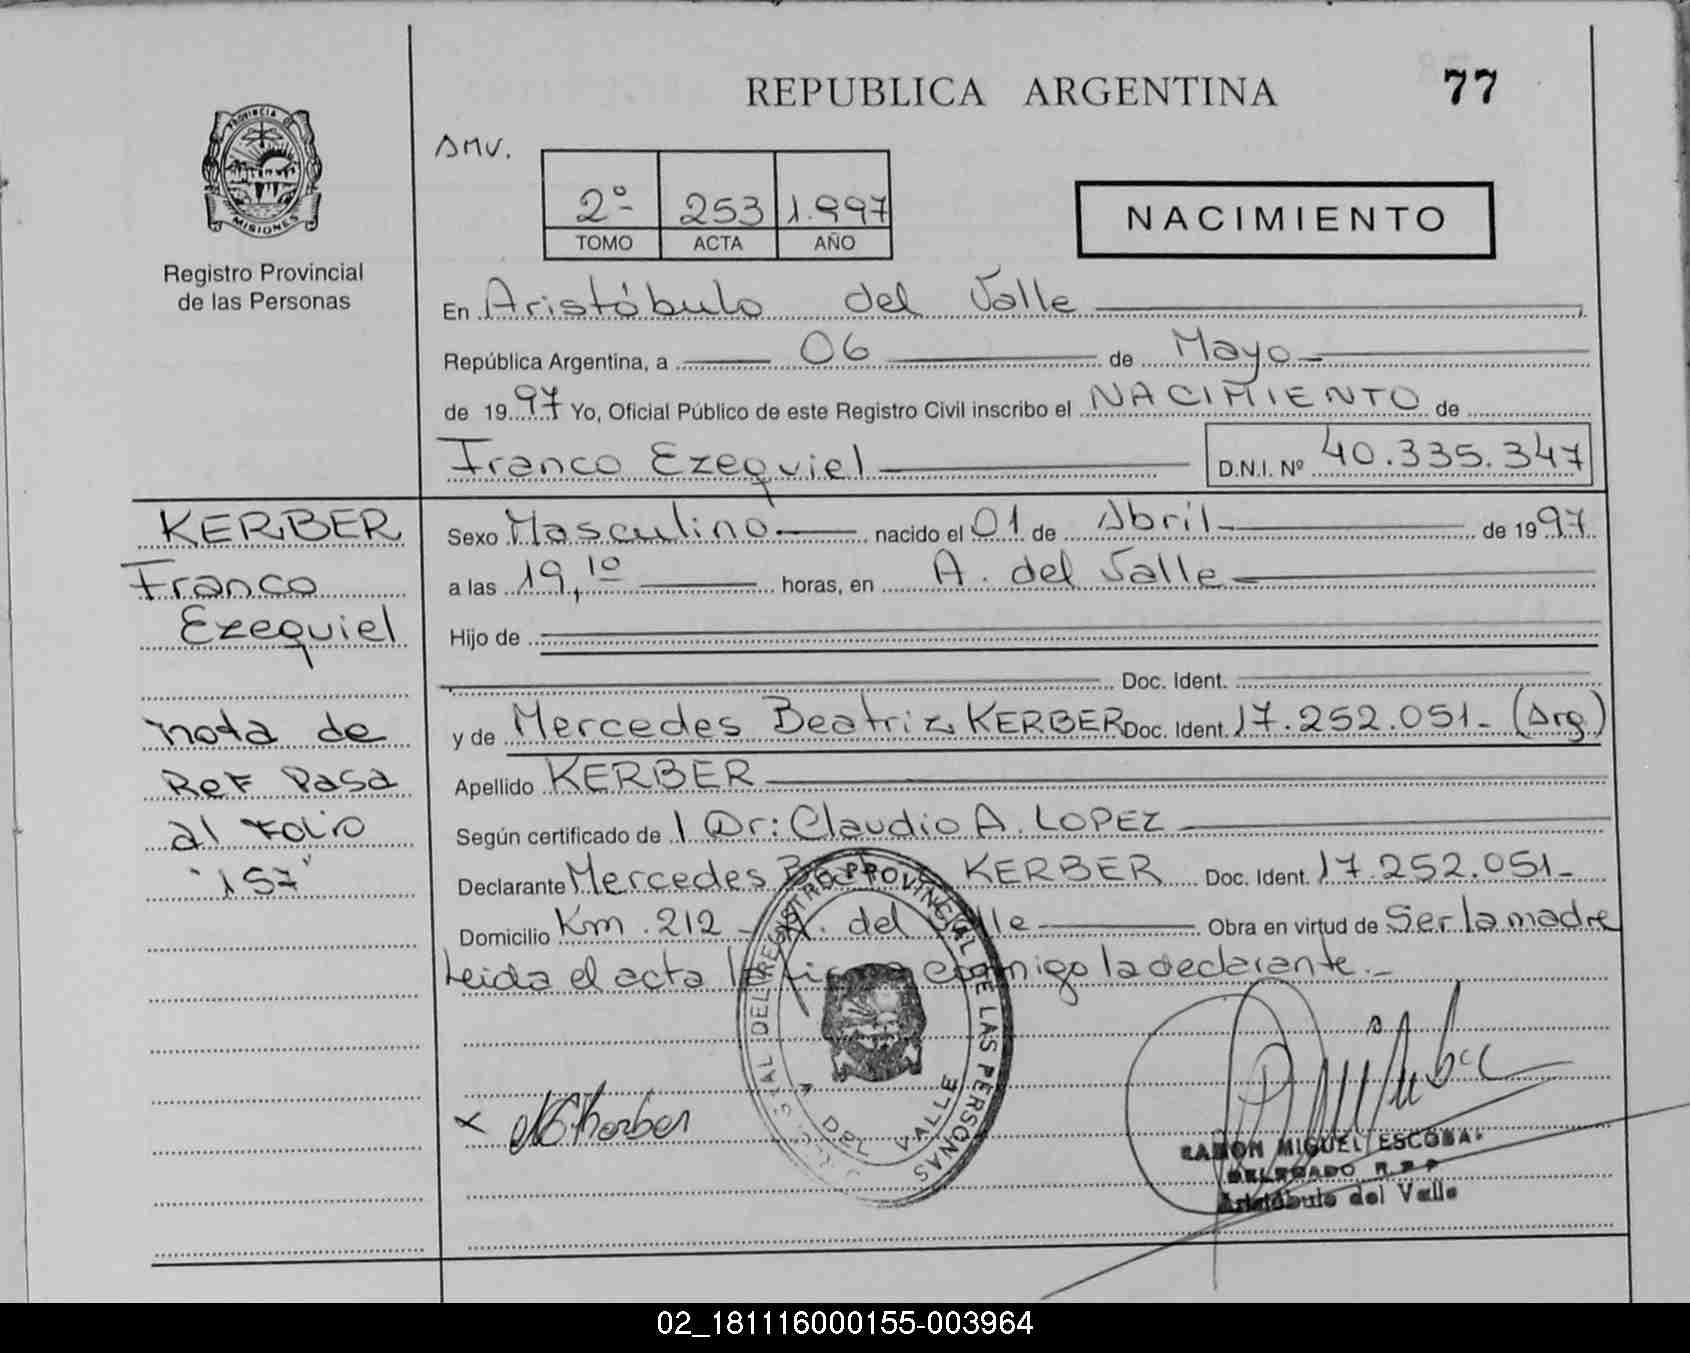 REPUBLICA ARGENTINA
77
PROVINCIA DE
MISIONES
Registro Provincial
de las Personas
AMV.
2º 253 1.997
TOMO ACTA AÑO
NACIMIENTO
En Aristóbulo del Valle
República Argentina, a 06 de Mayo
de 1997 Yo, Oficial Público de este Registro Civil inscribo el NACIMIENTO de
Franco Ezequiel D.N.I. Nº 40.335.347
KERBER
Franco
Ezequiel
nota de
Ref Pasa
al Folio
"157"
Sexo Masculino nacido el 01 de Abril de 1997
a las 19,10 horas, en A. del Valle
Hijo de
Doc. Ident.
y de Mercedes Beatriz KERBER Doc. Ident. 17.252.051- (Arg)
Apellido KERBER
Según certificado de l Dr: Claudio A. LOPEZ
Declarante Mercedes KERBER Doc. Ident. 17.252.051-
Domicilio Km. 212 - A. del Valle Obra en virtud de Ser la madre
Leida el acta la firma conmigo la declarante.-
DEL REGISTRO PROVINCIAL DE LAS PERSONAS
A DEL VALLE
x
RAMON MIGUEL ESCOBAR
DELEGADO R.P.P
Aristóbulo del Valle
02_181116000155-003964